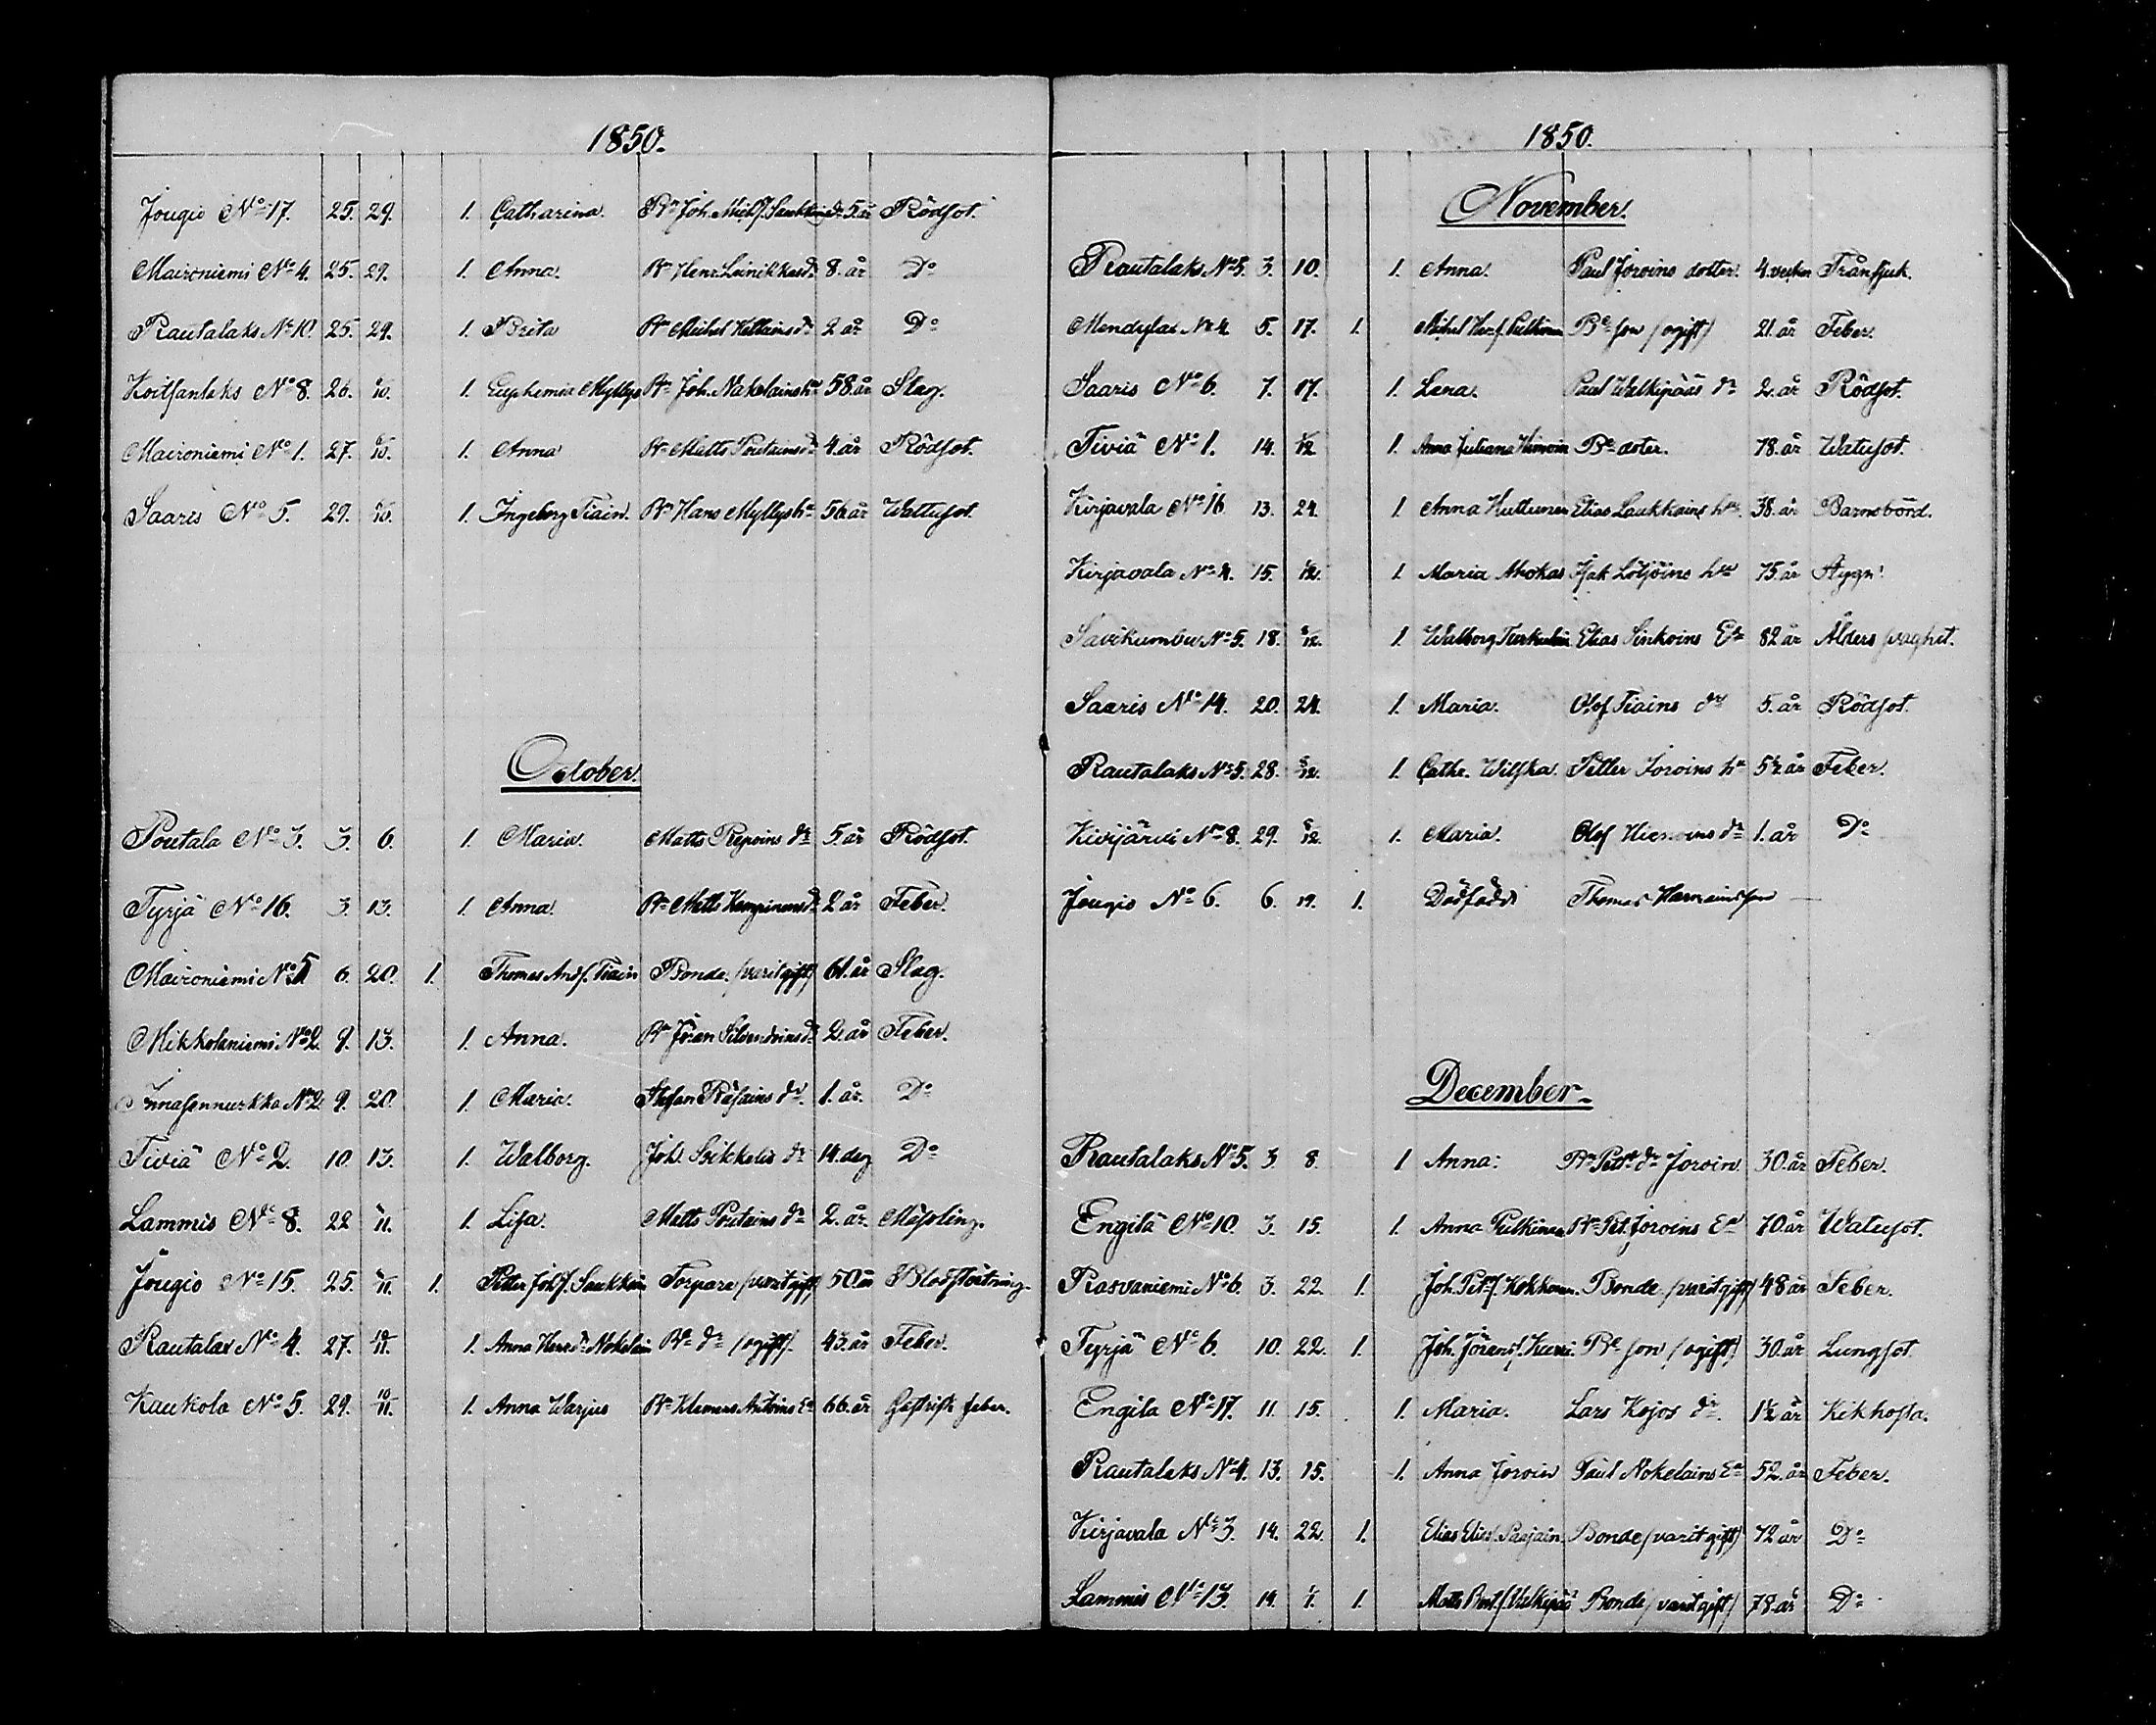 1850.
Jougio No 17. 25. 29. 1. Catharina. Bn Joh. Mich. dr 5. år Rödsot.
Maironiemi No 4. 25. 29. 1. Anna. Bn Henr. Leinikkas dr 8. år Do
Rautalaks No 10. 25. 29. 1. Brita Bn Michel dr 2 år Do
Koitsanlaks No 8. 26. 1. Euphemia Myllys Bn Joh. Nokelains hu 58. år Slag.
Maironiemi No 1. 27. 1. Anna Bn Matts Poutains dr 4. år Rödsot.
Saaris No 5. 29. 1. Ingeborg Tiain. Bn Hans Myllys hu 56 år Wattusot.
October.
Poutala No 3. 3. 6. 1. Maria. Matts Repoins dr 5. år Rödsot.
Tyrjä No 16. 3. 13. 1. Anna. Bn Matts dr 2 år Feber.
Maironiemi No 1 6. 20. 1. Thomas And.s. Tiain Bonde. (varit gift) 61. år Slag.
Mikkolaniemi No 2. 9. 13. 1. Anna. Bn Jöran Silvendoins dr 2. år Feber.
Innasennurkka No 2. 9. 20. 1. Maria. Stefan Räsains dr 1. år. Do
Tiviä No 2. 10 13. 1. Walborg. Joh. dr 14. dag Do
Lammis No 8. 22 /11. 1. Lisa. Matts Poutains dr 2. år. Mässling.
Jougio No 15. 25. /11. 1. Petter Joh.s. Saukkoin Torpare (varit gift) 50. år Blodstörtning.
Rautalax No 4. 27. 10/11. 1. Anna Henr dr Nokelain Be dr (ogift). 43. år Feber.
Kaukola No 5. 29. 10/11. 1. Anna Warjus Bn Klemens Antoins Ea 66. år Gastrisk feber.
1850.
November.
Rautalaks No 5. 3. 10. 1. Anna. Paul Joroins dotter. 4. veckor Trånsjuk.
Mendylax No 4. 5. 17. 1. Michel Hen.s. Pulkinen Be son (ogift) 21. år Feber.
Saaris No 6. 7. 17. 1. Lena. Paul Walkipääs dr 2. år Rödsot.
Tiviä No 1. 14. /12 1. Anna Juliana Be doter. 78. år Watusot.
Kirjavala No 16 13. 24. 1. Anna Huttunen Elias Laukkains hu 38. år Barnsbörd.
Kirjavala No 4. 15. /12. 1. Maria Isak Lötjöins hu 75. år
Savikumbu No 5. 18. 8/12. 1. Walborg Elias Sinkoins Ea 82 år Ålders svaghet.
Saaris No 14. 20. 24. 1. Maria. Olof Tiains dr 5. år Rödsot.
Rautalaks No 5. 28. 8/12. 1. Cathr. Wilska. Petter Joroins hu år Feber.
Kivijärvi No 8. 29. 8/12. 1. Maria. Olof Hienoins dr 1. år Do
Jougio No 6. 6. 19. 1. Dödfödd Thomas son —
December.
Rautalaks No 5. 3. 8. 1 Anna. Bn Pet. dr Joroin 30. år Feber.
Engilä No 10. 3. 15. 1. Anna Pulkinen Bn Pet. Joroins Ea 70. år Watusot.
Rasvaniemi No 6. 3. 22. 1. Joh. Pet.s. Kokkonen. Bonde (varit gift) 48 år Feber.
Tyrjä No 6. 10. 22. 1. Joh. Jöran.s. Be son (ogift) 30. år Lungsot.
Engila No 17. 11. 15. 1. Maria. Lars Kojos dr. 1½ år Kikhosta.
Rautalaks No 4. 13. 15. 1. Anna Joroin Paul Nokelains Ea 52. år Feber.
Kirjavala No 3. 14. 22 1. Elias Elias.s. Paajain. Bonde (varit gift) 72 år Do
Lammis No 13. 19. 1. Matts Walkipää Bonde (varit gift) 78. år Do